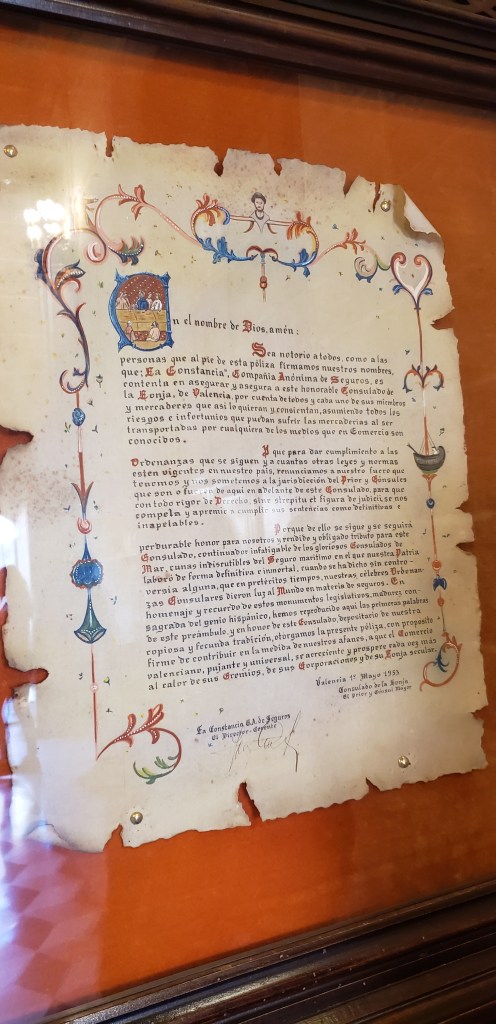 En el nombre de Dios, amén:
Sea notorio a todos, como a las
personas que al pie de esta póliza firmamos nuestros nombres,
que; La Constancia, Compañía Anónima de Seguros, es
contenta en asegurar y asegura a este honorable Consulado de
la Lonja, de Valencia, por cuenta de todos y cada uno de sus miembros
y mercaderes que así lo quieran y consientan, asumiendo todos los
riesgos e infortunios que puedan sufrir las mercaderías al ser
transportadas por cualquiera de los medios que en Comercio son
conocidos.
Y que para dar cumplimiento a las
Ordenanzas que se siguen y a cuantas otras leyes y normas
estén vigentes en nuestro país, renunciamos a nuestro fuero que
tenemos y nos sometemos a la jurisdicción del Prior y Cónsules
que son o fueren de aquí en adelante de este Consulado, para que
con todo rigor de Derecho, sine strepitu et figura de judicii, se nos
compela y apremie a cumplir sus sentencias como definitivas e
inapelables.
Porque de ello se sigue y se seguirá
perdurable honor para nosotros y rendido y obligado tributo para este
Consulado, continuador infatigable de los gloriosos Consulados de
Mar, cunas indiscutibles del Seguro marítimo en el que nuestra Patria
laboró de forma definitiva e inmortal, cuando se ha dicho sin contro-
versia alguna, que en pretéritos tiempos, nuestras célebres Ordenan-
zas Consulares dieron luz al Mundo en materia de seguros. En
homenaje y recuerdo de estos monumentos legislativos, madurez con-
sagrada del genio hispánico, hemos reproducido aquí, las primeras palabras
de este preámbulo, y en honor de este Consulado, depositario de nuestra
copiosa y fecunda tradición, otorgamos la presente póliza, con propósito
firme de contribuir en la medida de nuestros afanes, a que el Comercio
valenciano, pujante y universal, se acreciente y prospere cada vez más
al calor de sus Gremios, de sus Corporaciones y de su Lonja secular.
Valencia 1º Mayo 1953
Consulado de la Lonja
El Prior y Cónsul Mayor
La Constancia C.A. de Seguros
El Director-Gerente